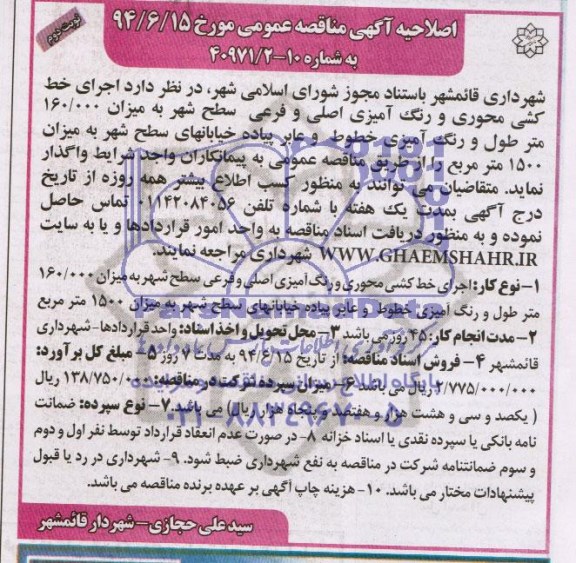 اصلاحیه آگهی مناقصه عمومی مورخ ۹۴/۶/۱۵
به شماره ۱۰-۴۰۹۷۱/۲
نوبت دوم
شهرداری قائمشهر باستناد مجوز شورای اسلامی شهر، در نظر دارد اجرای خط
کشی محوری و رنگ آمیزی اصلی و فرعی سطح شهر به میزان ۱۶۰/۰۰۰
متر طول و رنگ آمیزی خطوط و عابر پیاده خیابانهای سطح شهر به میزان
۱۵۰۰ متر مربع را از طریق مناقصه عمومی به پیمانکاران واجد شرایط واگذار
نماید. متقاضیان می توانند به منظور کسب اطلاع بیشتر همه روزه از تاریخ
درج آگهی بمدت یک هفته با شماره تلفن ۰۱۱۴۲۰۸۴۰۵۶ تماس حاصل
نموده و به منظور دریافت اسناد مناقصه به واحد امور قراردادها و یا به سایت
WWW.GHAEMSHAHR.IR شهرداری مراجعه نمایند.
۱- نوع کار: اجرای خط کشی محوری و رنگ آمیزی اصلی و فرعی سطح شهر به میزان ۱۶۰/۰۰۰
متر طول و رنگ آمیزی خطوط و عابر پیاده خیابانهای سطح شهر به میزان ۱۵۰۰ متر مربع
۲- مدت انجام کار: ۴۵ روز می باشد ۳- محل تحویل و اخذ اسناد: واحد قراردادها- شهرداری
قائمشهر ۴- فروش اسناد مناقصه: از تاریخ ۹۴/۶/۱۵ به مدت ۷ روز ۵- مبلغ کل برآورد:
۲/۷۷۵/۰۰۰/۰۰۰ ریال می باشد ۶- میزان سپرده شرکت در مناقصه: ۱۳۸/۷۵۰/۰۰۰ ریال
( یکصد و سی و هشت هزار و هفتصد و پنجاه هزار ریال) می باشد. ۷- نوع سپرده: ضمانت
نامه بانکی یا سپرده نقدی یا اسناد خزانه ۸- در صورت عدم انعقاد قرارداد توسط نفر اول و دوم
و سوم ضمانتنامه شرکت در مناقصه به نفع شهرداری ضبط شود. ۹- شهرداری در رد یا قبول
پیشنهادات مختار می باشد. ۱۰- هزینه چاپ آگهی بر عهده برنده مناقصه می باشد.
سید علی حجازی- شهردار قائمشهر